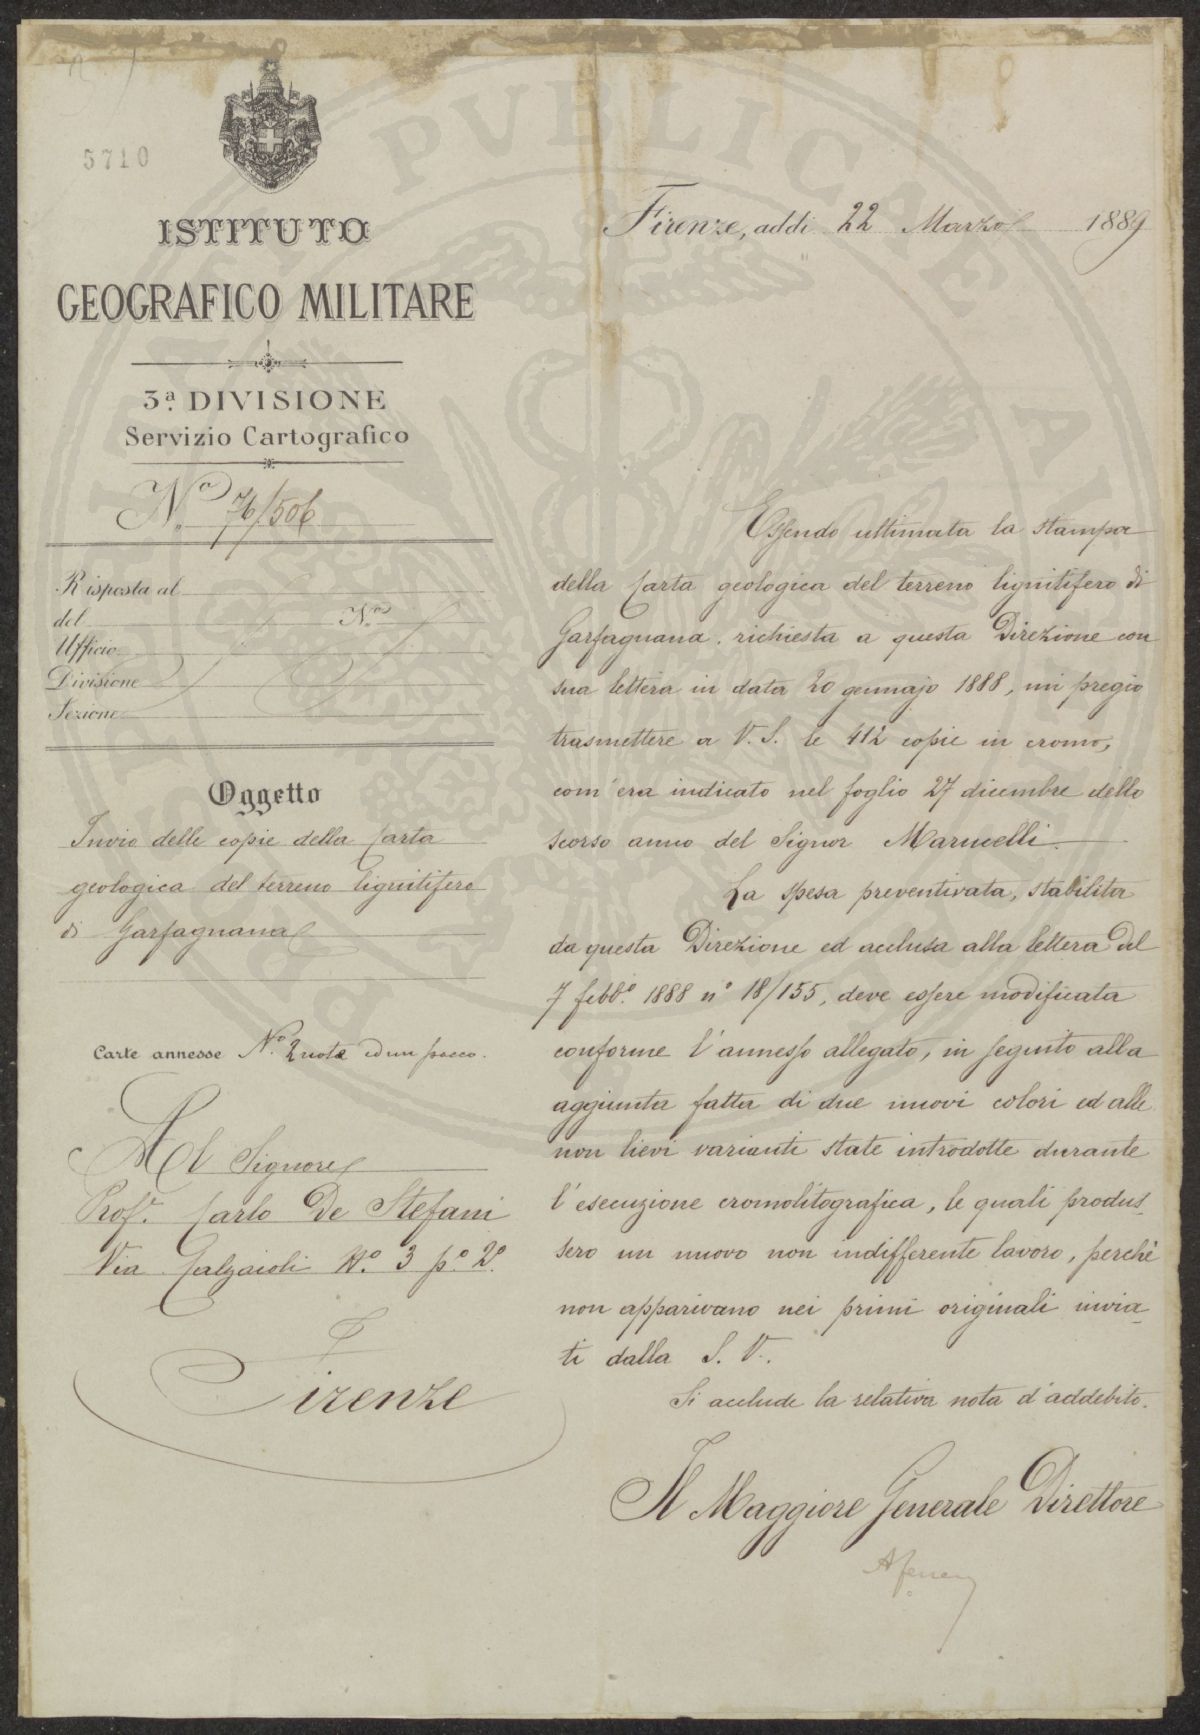 5710
ISTITUTO
GEOGRAFICO MILITARE
3ª DIVISIONE
Servizio Cartografico
N.º 76/506
Risposta al
del N.º
Ufficio
Divisione
Sezione
Oggetto
Invio delle copie della Carta
geologica del terreno lignitifero
di Garfagnana
Carte annesse N.º 2 note ed un pacco.
Al Signore
Prof.r Carlo De Stefani
Via Calzaioli N.º 3 p.º 2.º
Firenze
Firenze, addì 22 Marzo 1889
Essendo ultimata la stampa
della Carta geologica del terreno lignitifero di
Garfagnana, richiesta a questa Direzione con
sua lettera in data 20 gennajo 1888, mi pregio
trasmettere a V. S. le 412 copie in cromo,
com'era indicato nel foglio 27 dicembre dello
scorso anno del Signor Marucelli.
La spesa preventivata, stabilita
da questa Direzione ed acclusa alla lettera del
7 febb.º 1888 nº 18/155, deve essere modificata
conforme l'annesso allegato, in seguito alla
aggiunta fatta di due nuovi colori ed alle
non lievi varianti state introdotte durante
l'esecuzione cromolitografica, le quali produs-
sero un nuovo non indifferente lavoro, perchè
non apparivano nei primi originali invia-
ti dalla S. V.
Si acclude la relativa nota d'addebito.
Il Maggiore Generale Direttore